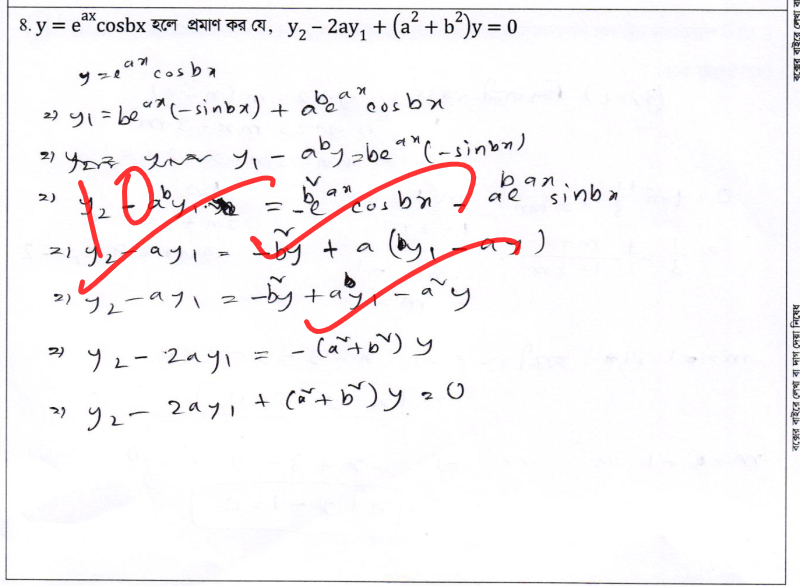 8. y = e^ax cosbx হলে প্রমাণ কর যে, y₂ − 2ay₁ + (a² + b²)y = 0
y = e^ax cosbx
⇒ y₁ = be^ax (−sinbx) + ae^ax cosbx
⇒ y₁ − ay = be^ax (−sinbx)
⇒ y₂ − ay₁ = −b²e^ax cosbx − abe^ax sinbx
⇒ y₂ − ay₁ = −b²y + a(y₁ − ay)
⇒ y₂ − ay₁ = −b²y + ay₁ − a²y
⇒ y₂ − 2ay₁ = −(a² + b²)y
⇒ y₂ − 2ay₁ + (a² + b²)y = 0
10
বক্সের বাইরে লেখা বা দাগ দেয়া নিষেধ